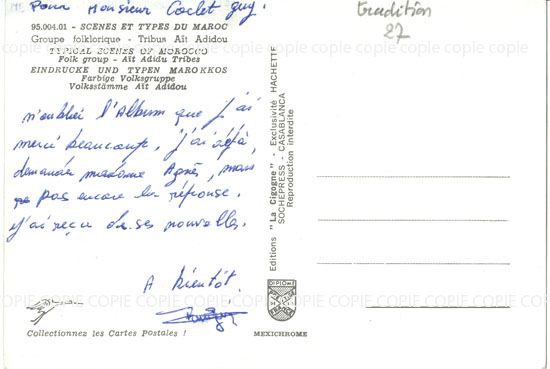 Pour Monsieur Coclet guy.
tradition
27
95.004.01 - SCENES ET TYPES DU MAROC
Groupe folklorique - Tribus Aït Adidou
TYPICAL SCENES OF MOROCCO
Folk group - Aït Adidu Tribes
EINDRUCKE UND TYPEN MAROKKOS
Farbige Volksgruppe
Volksstämme Aït Adidou
n'oubliez l'Album que j'ai
merci beaucoup, j'ai déjà,
demandée madame Agnès, mais
pas encore la réponse.
j'ai reçu de ses nouvelles.
A bientôt.
Collectionnez les Cartes Postales !
Editions "La Cigogne" - Exclusivité HACHETTE
SOCHEPRESS - CASABLANCA
Reproduction interdite
DIPLOME
FRANCE
MEXICHROME
COPIE COPIE COPIE COPIE COPIE COPIE COPIE COPIE COPIE
COPIE COPIE COPIE COPIE COPIE COPIE COPIE COPIE COPIE